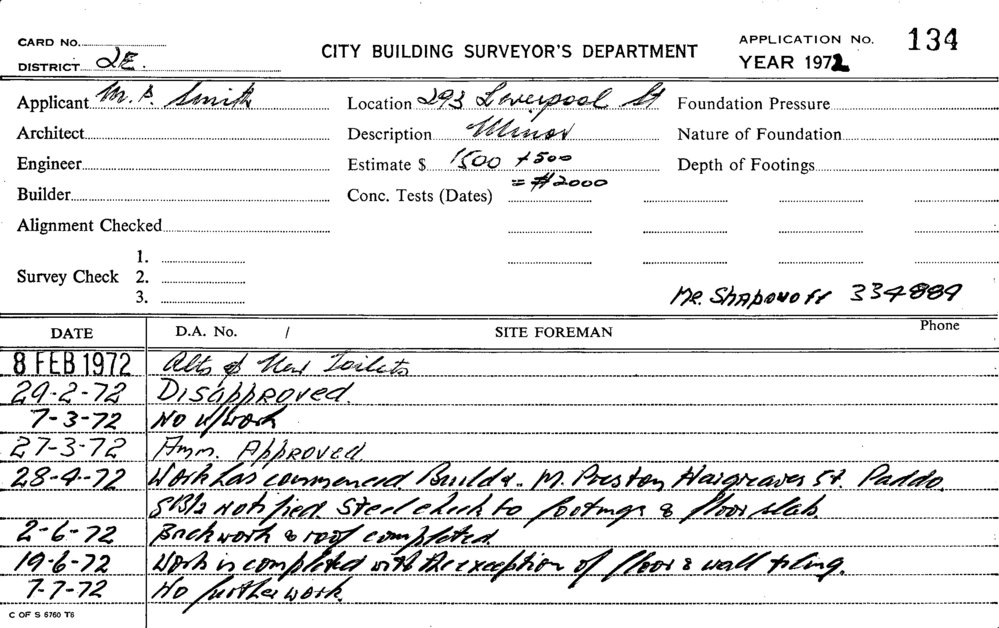 CARD No.
DISTRICT 2E.
CITY BUILDING SURVEYOR'S DEPARTMENT
APPLICATION No. 134
YEAR 1972
Applicant M. P. Smith
Location 293 Liverpool St
Foundation Pressure
Architect
Description Minor
Nature of Foundation
Engineer
Estimate $ 1500 + 500
= $2000
Depth of Footings
Builder
Conc. Tests (Dates)
Alignment Checked
Survey Check
1.
2.
3.
Mr. Shaponoff 334889
DATE D.A. No. / SITE FOREMAN Phone
8 FEB 1972 Alts & New Toilets
29-2-72 Disapproved.
7-3-72 No w/work
27-3-72 Amm. Approved.
28-4-72 Work has commenced. Builder. M. Preston Hargraves St. Paddo.
notified steel check to footings & floor slab.
2-6-72 Brickwork & roof completed.
19-6-72 Work is completed with the exception of floor & wall tiling.
7-7-72 No further work.
C OF S 6760 T6